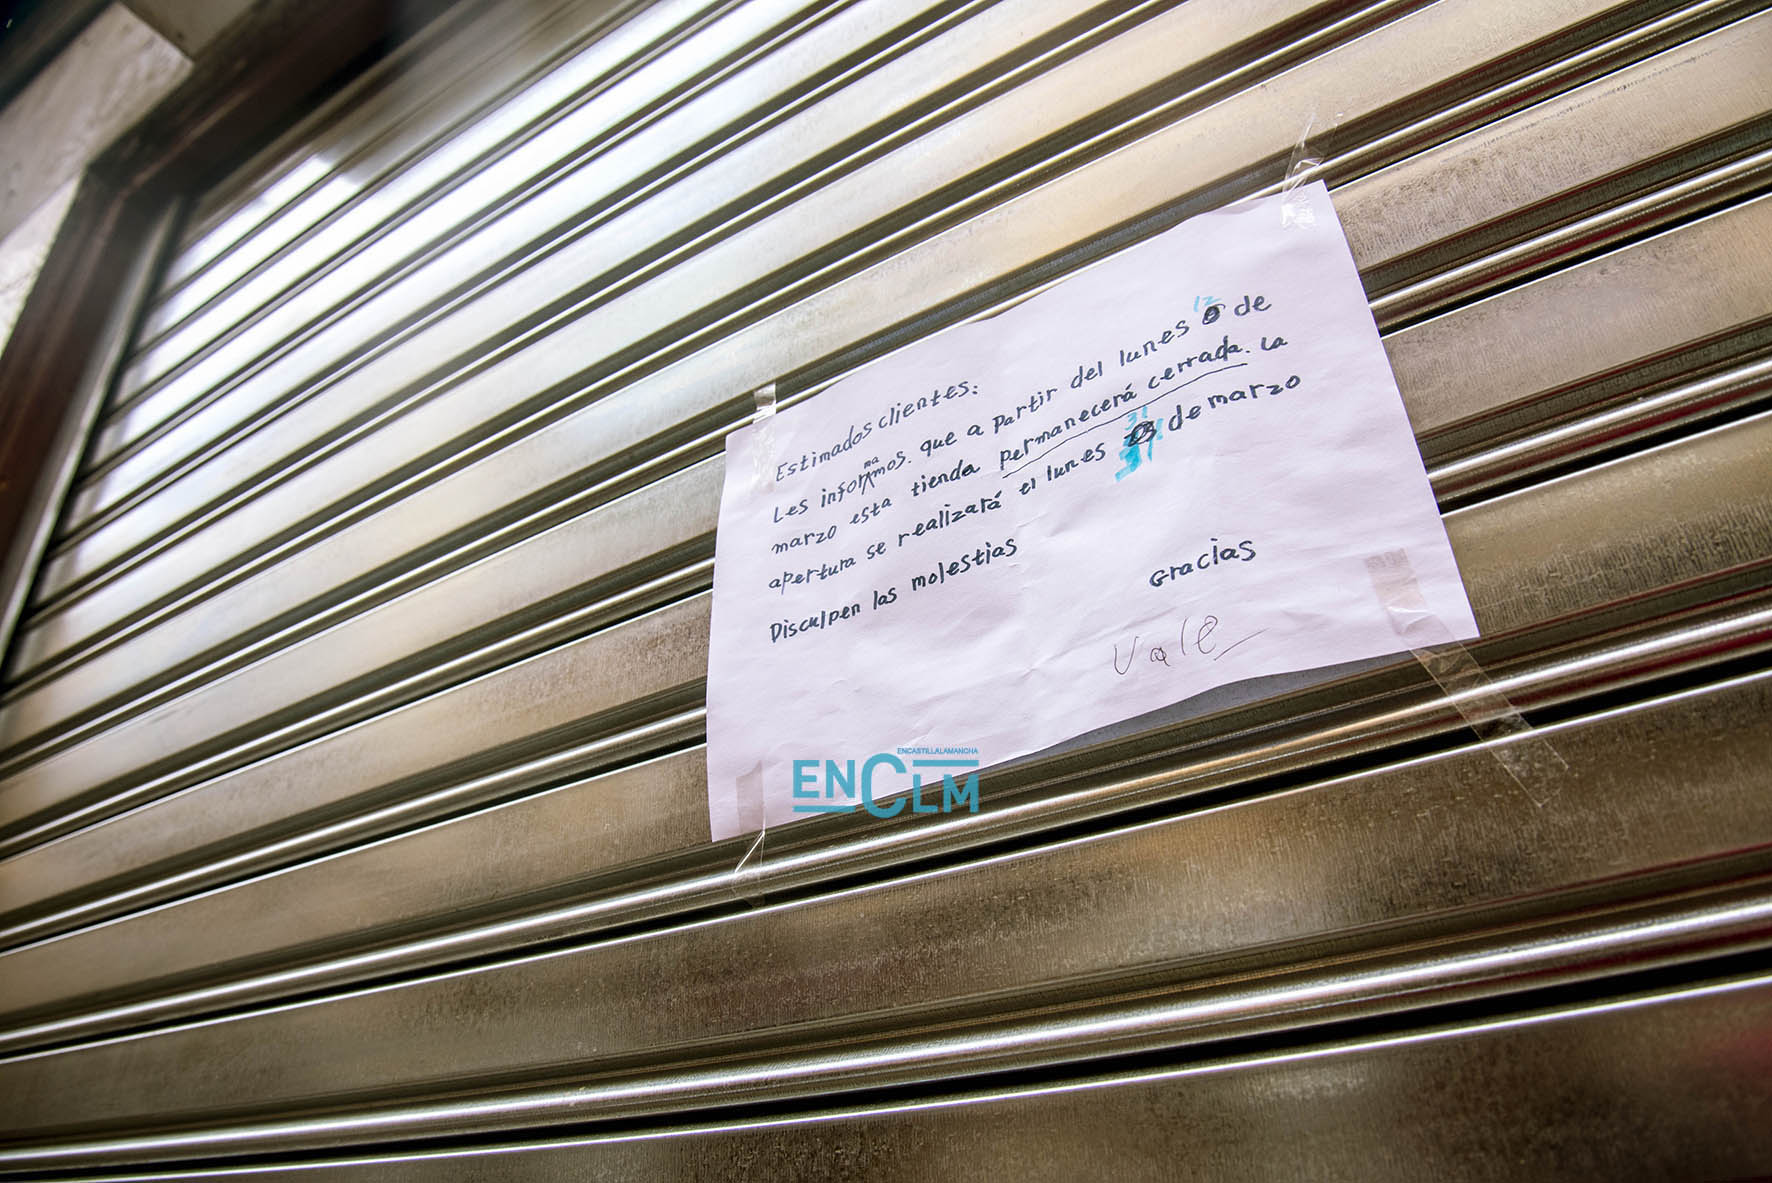 Estimados clientes:
Les informamos. que a partir del lunes 12 de
marzo esta tienda permanecerá cerrada. La
apertura se realizará el lunes 31 de marzo
Disculpen las molestias
Gracias
Vale
ENCASTILLALAMANCHA
ENCLM